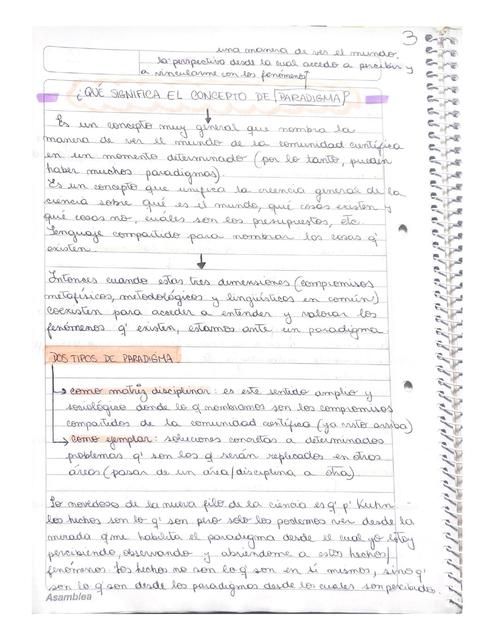 3
una manera de ver el mundo.
la perspectiva desde la cual accedo a percibir y
a vincularme con los fenómenos
¿QUÉ SIGNIFICA EL CONCEPTO DE PARADIGMA?
Es un concepto muy general que nombra la
manera de ver el mundo de la comunidad científica
en un momento determinado (por lo tanto, pueden
haber muchos paradigmas).
Es un concepto que unifica la creencia general de la
ciencia sobre qué es el mundo, qué cosas existen y
qué cosas no, cuáles son los presupuestos, etc.
Lenguaje compartido para nombrar las cosas q'
existen.
Entonces cuando estas tres dimensiones (compromisos
metafísicos, metodológicos y lingüísticos en común)
coexisten para acceder a entender y valorar los
fenómenos q' existen, estamos ante un paradigma
DOS TIPOS DE PARADIGMA
como matriz disciplinar: es este sentido amplio y
sociológico donde lo q nombramos son los compromisos
compartidos de la comunidad científica (ya visto arriba)
como ejemplar: soluciones concretas a determinados
problemas q' son los q serán replicados en otras
áreas (pasar de un área/disciplina a otra)
Lo novedoso de la nueva filo de la ciencia es q' p' Kuhn
los hechos son lo q' son pero solo los podemos ver desde la
mirada que habilita el paradigma desde el cual yo estoy
percibiendo, observando y abordando a estos hechos/
fenómenos. Los hechos no son lo q son en sí mismos, sino q'
son lo q son desde los paradigmas desde los cuales son percibidos.
Asamblea